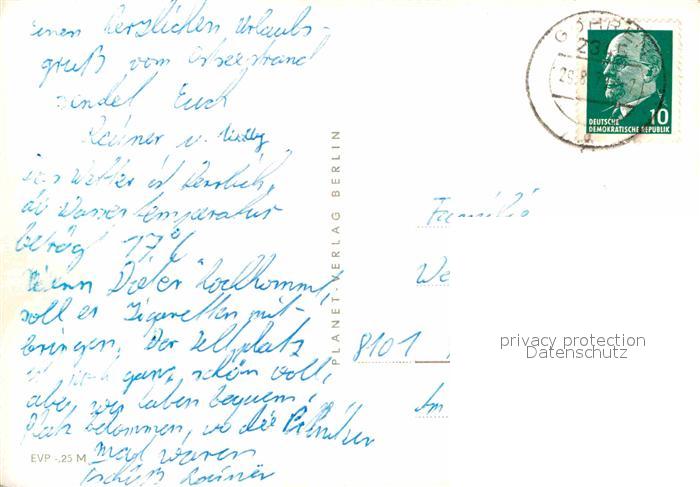 einen herzlichen Urlaubs-
gruß vom Ostseestrand
sendet Euch
Rainer u.
das Wetter ist herrlich,
die Wassertemperatur
beträgt 17°C
Wenn Dieter hochkommt,
soll er Zigaretten mit-
bringen. Der Zeltplatz
ist ganz schön voll,
aber wir haben bequem
Platz bekommen, wo die
mal waren
Tschüß Rainer
EVP -.25 M
PLANET-VERLAG BERLIN
GÖHREN
DEUTSCHE
DEMOKRATISCHE REPUBLIK
10
Familie
We
8101
Am
privacy protection
Datenschutz